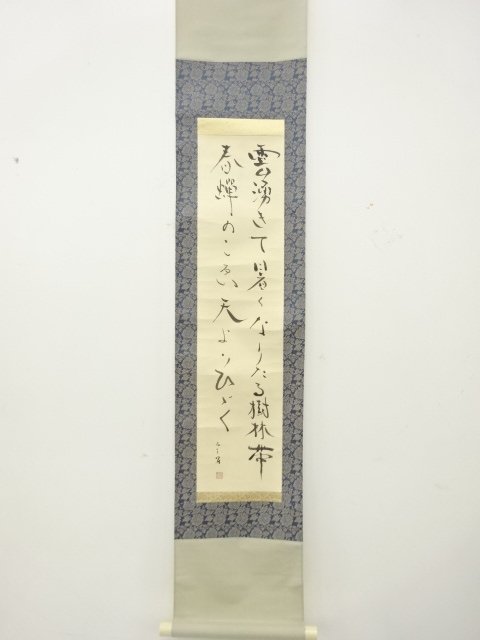 雲湧きて暑くなりたる樹林帯
春蟬のこゑ天よりひゞく